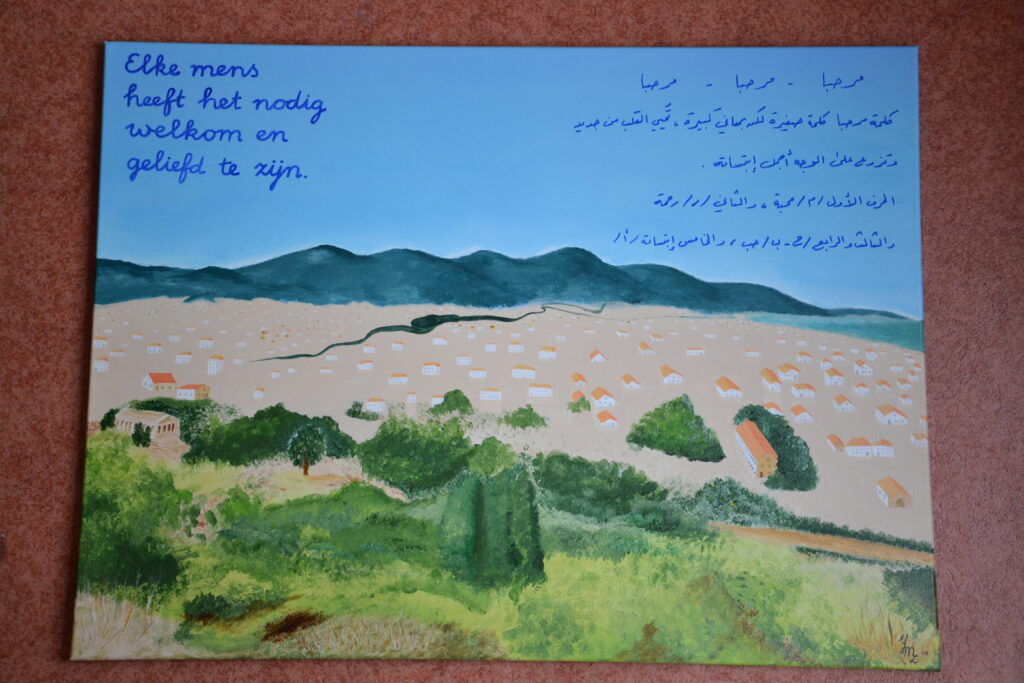 Elke mens
heeft het nodig
welkom en
geliefd te zijn.
مرحبا - مرحبا - مرحبا
كلمة مرحبا كلمة صغيرة لكن بمعاني كبيرة ، تُحيي القلب من جديد
وتزرع على الوجه أجمل إبتسامة .
الحرف الأول /م/ محبة ، والثاني /ر/ رحمة
والثالث والرابع /ح - ب/ حب ، والخامس إبتسامة /أ/